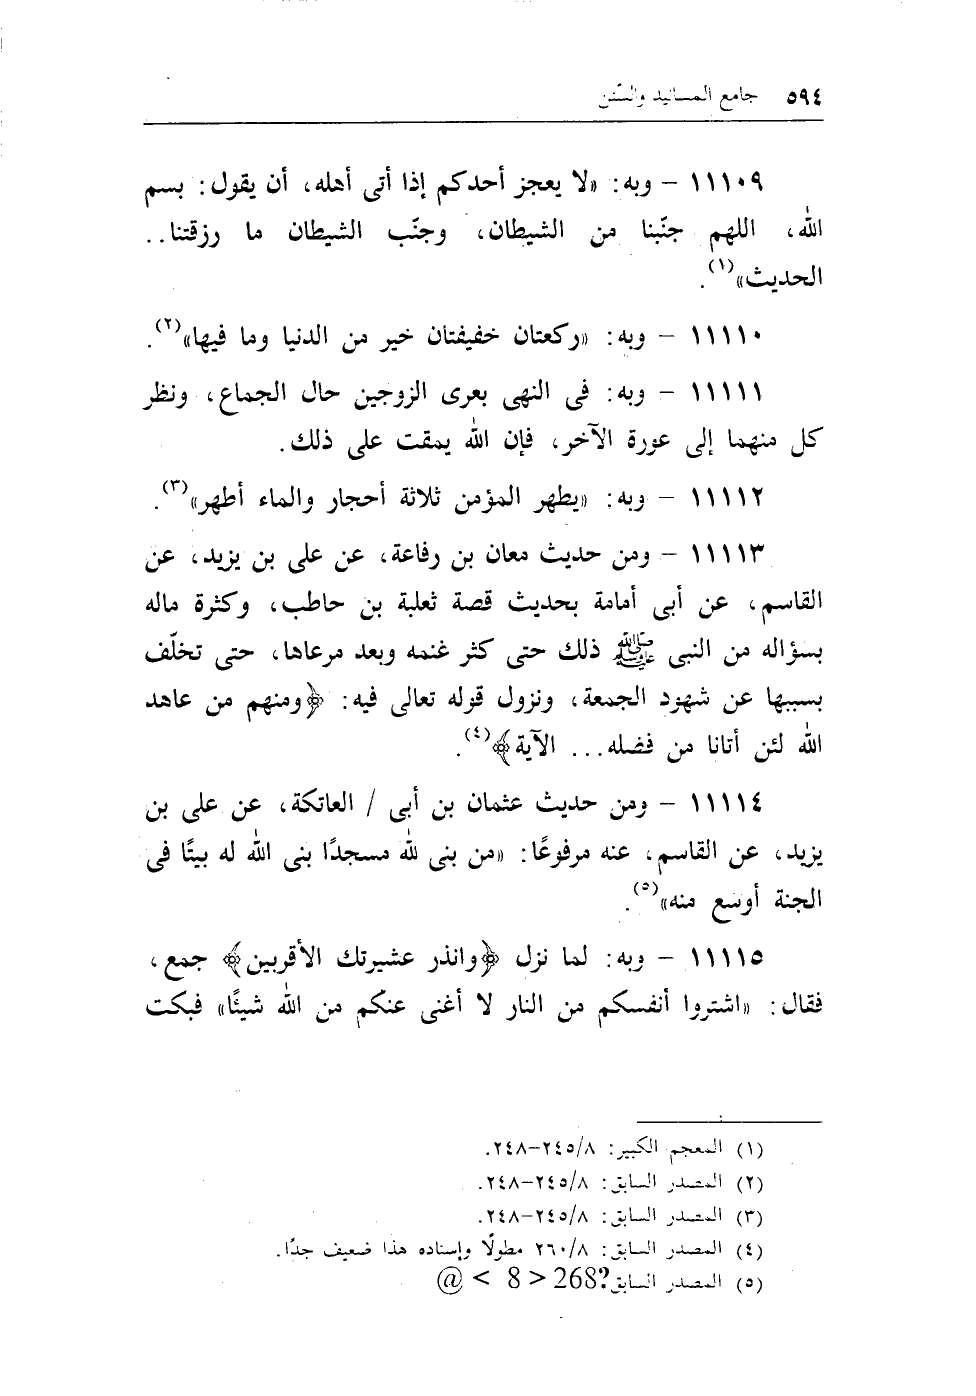 ٥٩٤ جامع المسانيد والسّنن
١١١٠٩ – وبه: «لا يعجز أحدكم إذا أتى أهله، أن يقول: بسم
الله، اللهم جنّبنا من الشيطان، وجنّب الشيطان ما رزقتنا..
الحديث»(١).
١١١١٠ – وبه: «ركعتان خفيفتان خير من الدنيا وما فيها»(٢).
١١١١١ – وبه: فى النهى بعرى الزوجين حال الجماع، ونظر
كل منهما إلى عورة الآخر، فإن الله يمقت على ذلك.
١١١١٢ – وبه: «يطهر المؤمن ثلاثة أحجار والماء أطهر»(٣).
١١١١٣ – ومن حديث معان بن رفاعة، عن على بن يزيد، عن
القاسم، عن أبى أمامة بحديث قصة ثعلبة بن حاطب، وكثرة ماله
بسؤاله من النبى ﷺ ذلك حتى كثر غنمه وبعد مرعاها، حتى تخلّف
بسببها عن شهود الجمعة، ونزول قوله تعالى فيه: ﴿ومنهم من عاهد
الله لئن أتانا من فضله... الآية﴾(٤).
١١١١٤ – ومن حديث عثمان بن أبى / العاتكة، عن على بن
يزيد، عن القاسم، عنه مرفوعًا: «من بنى لله مسجدًا بنى الله له بيتًا فى
الجنة أوسع منه»(٥).
١١١١٥ – وبه: لما نزل ﴿وانذر عشيرتك الأقربين﴾ جمع،
فقال: «اشتروا أنفسكم من النار لا أغنى عنكم من الله شيئًا» فبكت
(١) المعجم الكبير: ٨/٢٤٥–٢٤٨.
(٢) المصدر السابق: ٨/٢٤٥–٢٤٨.
(٣) المصدر السابق: ٨/٢٤٥–٢٤٨.
(٤) المصدر السابق: ٨/٢٦٠ مطولًا وإسناده هذا ضعيف جدًا.
(٥) المصدر السابق@ < 8 > 268?